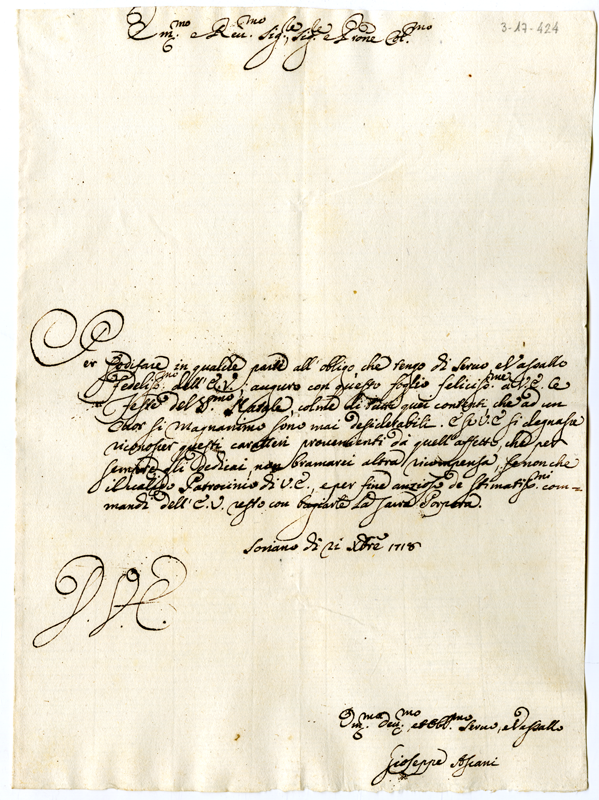 3-17-424
Em.mo e Reu.mo Sig.re, Sig.re e Prone Col.mo
Per sodisfare in qualche parte all'obligo, che tengo di seruo, e Vassallo
fedeliss.mo dell'E.V.; auguro con questo foglio feliciss.me a V.E. le
Feste del S.mo Natale, colme di tutti quei contenti che ad un
Cuor si Magnanimo sono mai desiderabili. E si V.E. si degnasse
riconoscer questi caratteri prouenienti da quell'affetto, che per
sempre gli dedicai, non bramarei altra ricompensa, se non che
il ualido Patrocinio di V.E., e per fine anzioso de stimatiss.mi com=
mandi dell'E.V. resto con bagiarle la sacra Porpora.
Soriano di 21 Xbre 1718
D.V.E.
Um.mo Deu.mo et Obl.mo seruo, e Vassallo
Gioseppe Ascani